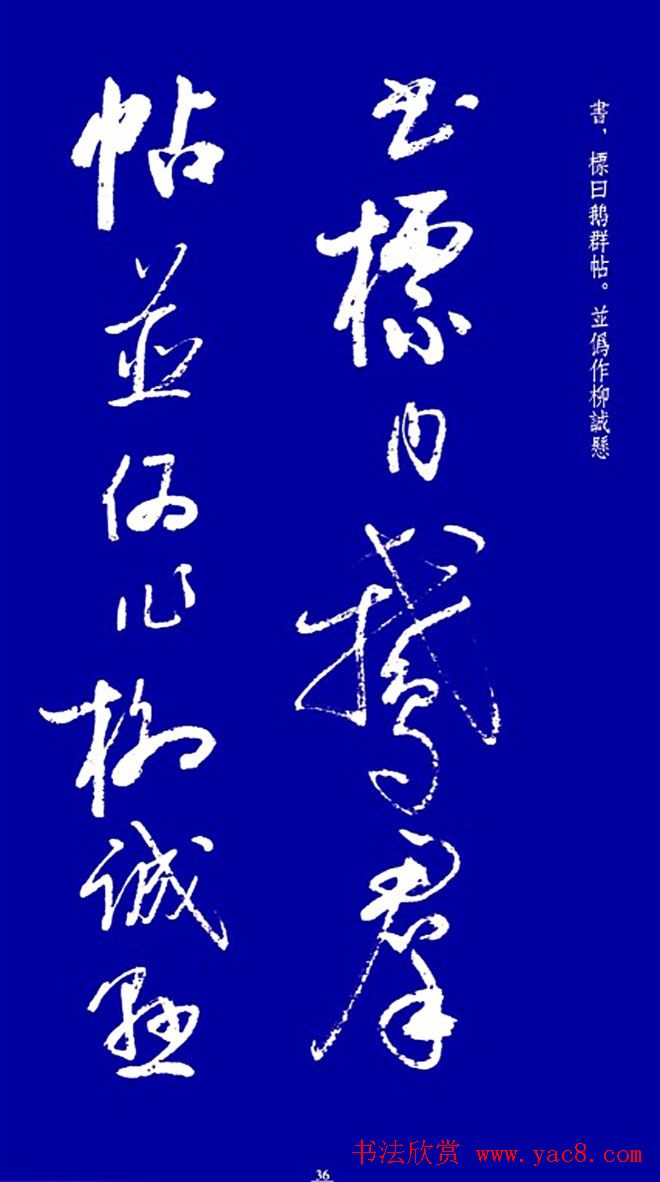 書、標曰鵝群帖。並僞作柳誠懸
书標曰鵝羣
帖並偽作柳诚懸
36
书法欣赏 www.yac8.com